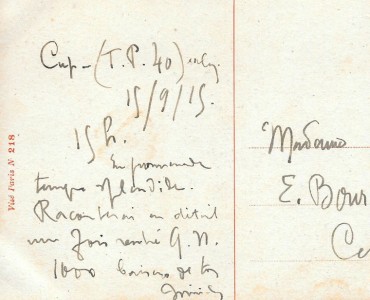 Cup - (T.P. 40)
15/9/15.
15 h.
En promenade
temps splendide.
Raconterai en détail
une fois rentré G.N.
1000 baisers de ton
Visé Paris N 218
Madame
E. Bour